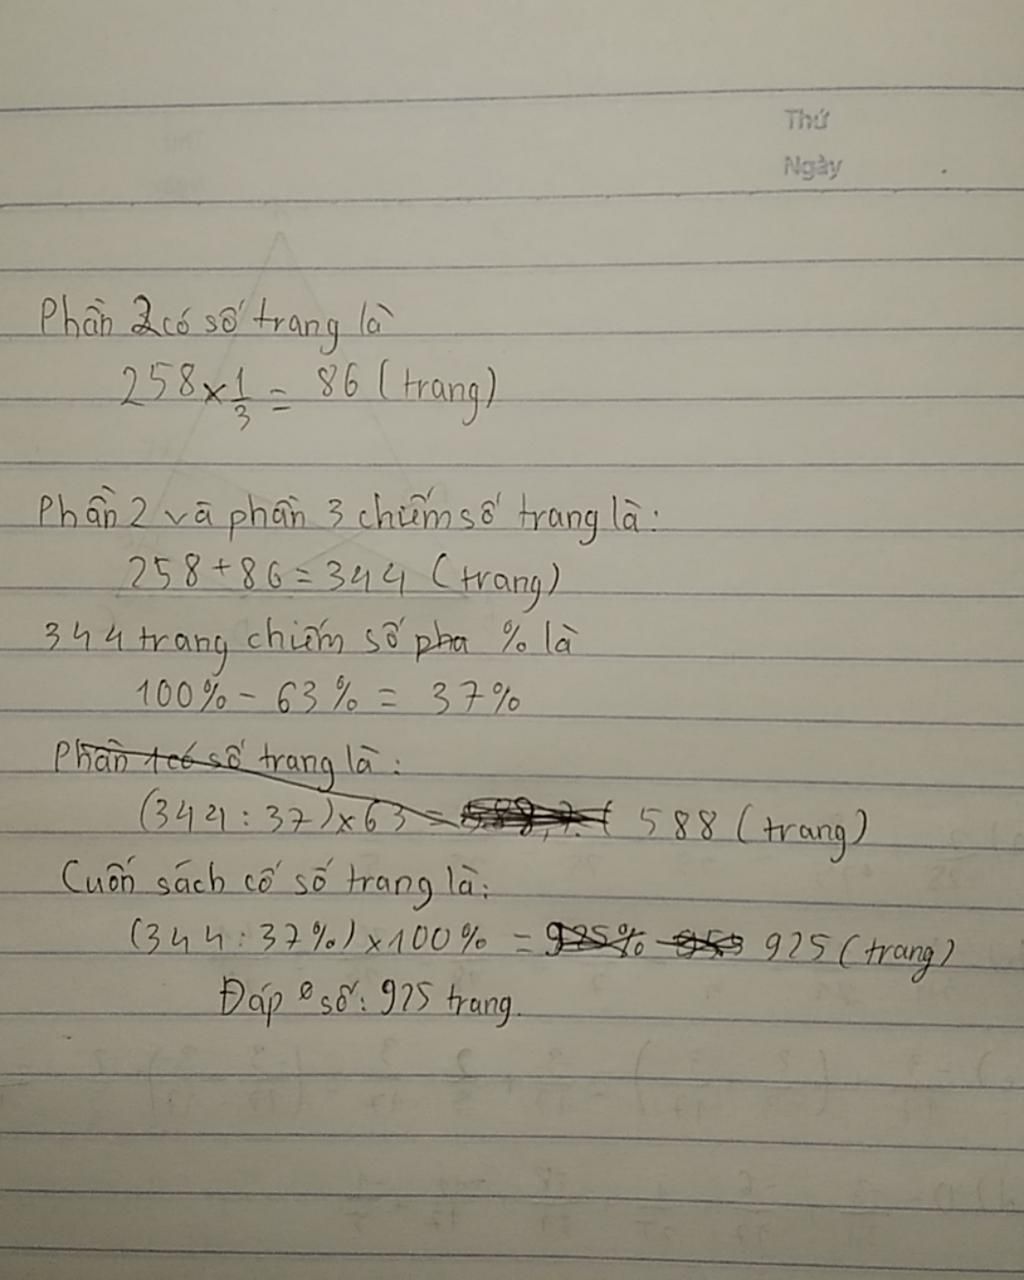 Thứ
Ngày
Phần 2 có số trang là
258 × 1/3 = 86 (trang)
Phần 2 và phần 3 chiếm số trang là:
258 + 86 = 344 (trang)
344 trang chiếm số pha % là
100% - 63% = 37%
Phần 1 có số trang là:
(344 : 37) × 63 = 588 (trang)
Cuốn sách có số trang là:
(344 : 37%) × 100% = 925 (trang)
Đáp số: 925 trang.